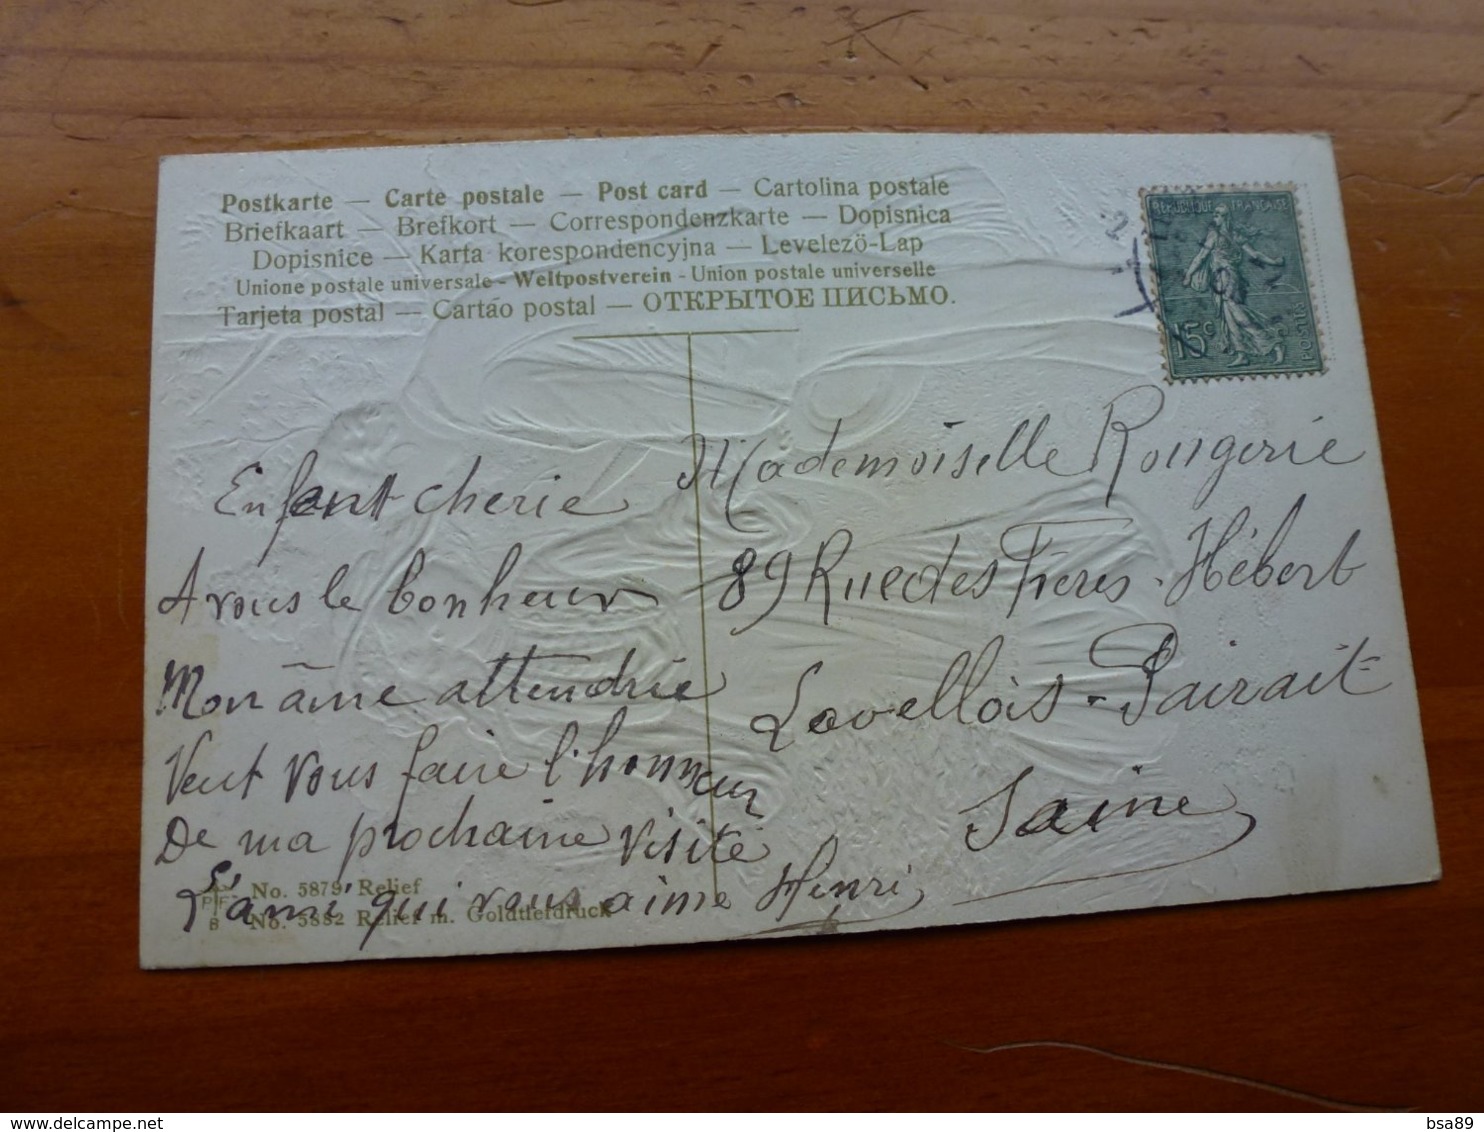 Postkarte — Carte postale — Post card — Cartolina postale
Briefkaart — Brefkort — Correspondenzkarte — Dopisnica
Dopisnice — Karta korespondencyjna — Levelező-Lap
Unione postale universale - Weltpostverein - Union postale universelle
Tarjeta postal — Cartão postal — ОТКРЫТОЕ ПИСЬМО.
REPUBLIQUE FRANÇAISE
15c
POSTES
Enfant cherie
A vous le bonheur
Mon âme attendrie
Veut vous faire l'honneur
De ma prochaine visite
L'ami qui vous aime Henri
Mademoiselle Rougerie
89 Rue des Frères-Hébert
Lovellois-Pairait=
Saine
No. 5879 Relief
No. 5882 Relief m. Goldtiefdruck
delcampe.net
bsa89